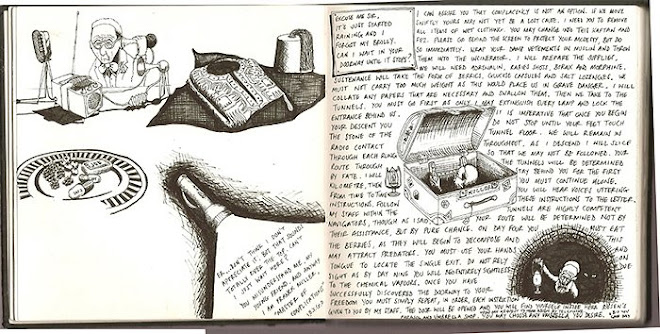 EXCUSE ME SIR,
IT'S JUST STARTED
RAINING AND I
FORGOT MY BROLLY.
CAN I WAIT IN YOUR
DOORWAY UNTIL IT STOPS?
I CAN ASSURE YOU THAT COMPLACENCY IS NOT AN OPTION. IF WE MOVE
SWIFTLY YOURS MAY NOT YET BE A LOST CAUSE. I NEED YOU TO REMOVE
ALL ITEMS OF WET CLOTHING. YOU MAY CHANGE INTO THIS KAFTAN AND
FEZ. PLEASE GO BEHIND THE SCREEN TO PROTECT YOUR MODESTY, BUT DO
SO IMMEDIATELY. WRAP YOUR DAMP VETEMENTS IN MUSLIN AND THROW
THEM INTO THE INCINERATOR. I WILL PREPARE THE SUPPLIES,
WE WILL NEED ADRENALIN, RABIES SHOTS, BORAX AND MORPHINE.
SUSTENANCE WILL TAKE THE FORM OF BERRIES, GLUCOSE CAPSULES AND SALT LOZENGES, WE
MUST NOT CARRY TOO MUCH WEIGHT AS THIS WOULD PLACE US IN GRAVE DANGER. I WILL
COLLATE ANY PAPERS THAT ARE NECESSARY AND SWALLOW THEM, THEN WE TAKE TO THE
TUNNELS. YOU MUST GO FIRST AS ONLY I MAY EXTINGUISH EVERY LAMP AND LOCK THE
ENTRANCE BEHIND US. IT IS IMPERATIVE THAT ONCE YOU BEGIN
YOUR DESCENT YOU DO NOT STOP UNTIL YOUR FEET TOUCH
THE STONE OF THE TUNNEL FLOOR. WE WILL REMAIN IN
RADIO CONTACT THROUGHOUT, AS I DESCEND I WILL SLICE
THROUGH EACH RUNG SO THAT WE MAY NOT BE FOLLOWED. YOUR
ROUTE THROUGH THE TUNNELS WILL BE DETERMINED
BY FATE. I WILL STAY BEHIND YOU FOR THE FIRST
KILOMETRE, THEN YOU MUST CONTINUE ALONE.
FROM TIME TO TIME YOU WILL HEAR VOICES UTTERING
INSTRUCTIONS, FOLLOW THESE INSTRUCTIONS TO THE LETTER.
MY STAFF WITHIN THE TUNNELS ARE HIGHLY COMPETENT
NAVIGATORS, THOUGH AS I SAID YOUR ROUTE WILL BE DETERMINED NOT BY
THEIR ASSISTANCE, BUT BY PURE CHANCE. ON DAY FOUR YOU MUST EAT
THE BERRIES, AS THEY WILL BEGIN TO DECOMPOSE AND THIS
MAY ATTRACT PREDATORS. YOU MUST USE YOUR HANDS AND
TONGUE TO LOCATE THE SINGLE EXIT. DO NOT RELY ON
SIGHT AS BY DAY NINE YOU WILL BE ENTIRELY SIGHTLESS DUE
TO THE CHEMICAL VAPOURS. ONCE YOU HAVE
SUCCESSFULLY DISCOVERED THE DOORWAY TO YOUR
FREEDOM YOU MUST SIMPLY REPEAT, IN ORDER, EACH INSTRUCTION
GIVEN TO YOU BY MY STAFF. THE DOOR WILL BE OPENED AND YOU WILL FIND YOURSELF INSIDE
PARASOL AND UMBRELLA SHOP. YOU MAY CHOOSE ANY UMBRELLA YOU DESIRE.
MOLLOY
ER.. DON'T THINK I DON'T
APPRECIATE IT, BUT THAT SOUNDS
I JUST WAIT HERE?
YOU MISUNDERSTAND ME, MY
YOUNG FRIEND, AND ANYWAY